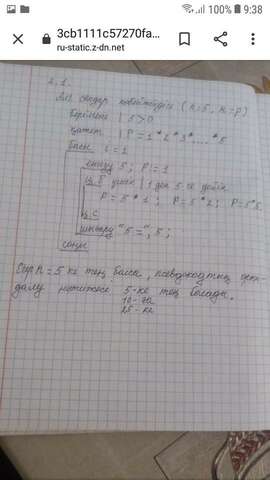 9:38
3cb1111c57270fa...
ru-static.z-dn.net
2.1.
Алг сандар көбейтіндісі (n=5, k=P)
берілгені | 5 > 0
қажет | P = 1 * 2 * 3 * ... * 5
басы i = 1
енгізу 5; P = 1
ц.б үшін i 1 ден 5 ке дейін
P = 5 * 1; P = 5 * 2; P = 5 * 5
ц.с
шығару "5 =", 5;
соңы
Егер n = 5 ке тең болса, псевдокодтың орын-
далу нәтижесі 5-ке тең болады.
10-ға
25-ке